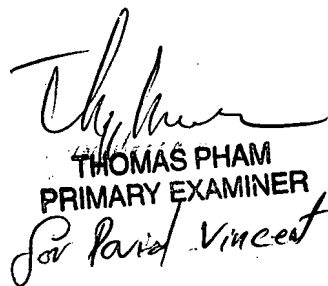 THOMAS PHAM
PRIMARY EXAMINER
for David Vincent